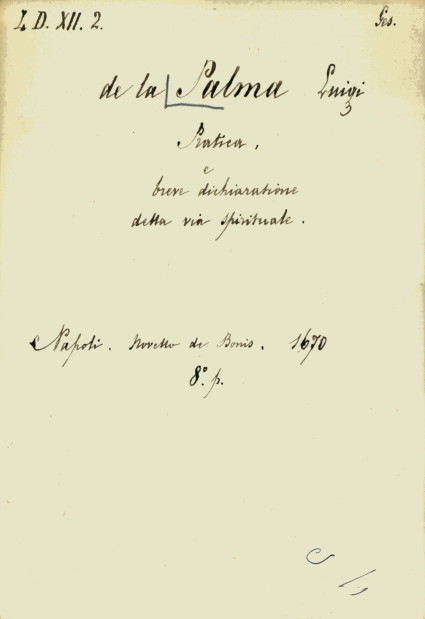 I. D. XII. 2. Ges.
de la Palma Luigi
Pratica,
e
breve dichiaratione
della via spirituale.
Napoli. Novello de Bonis. 1670
8.° p.